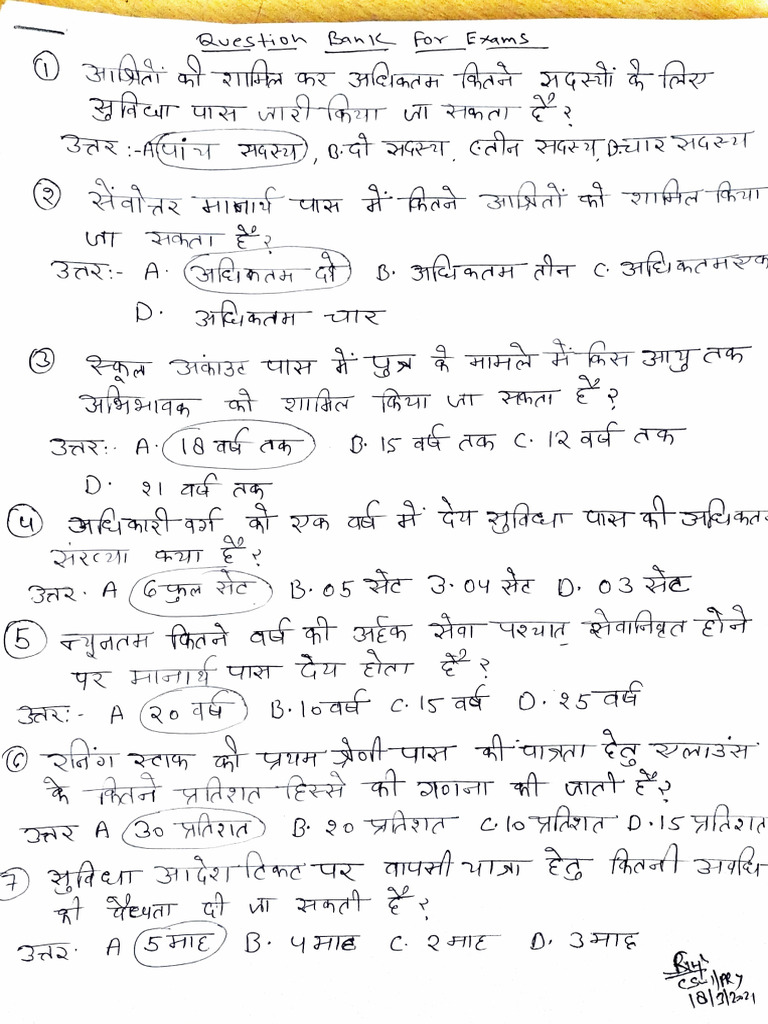 Question Bank For Exams
① आश्रितों को शामिल कर अधिकतम कितने सदस्यों के लिए
सुविधा पास जारी किया जा सकता है?
उत्तर :- A पांच सदस्य, B. दो सदस्य, C. तीन सदस्य, D. चार सदस्य
② सेवोत्तर मानार्थ पास में कितने आश्रितों को शामिल किया
जा सकता है?
उत्तर:- A. अधिकतम दो B. अधिकतम तीन C. अधिकतम एक
D. अधिकतम चार
③ स्कूल अकांउट पास में पुत्र के मामले में किस आयु तक
अभिभावक को शामिल किया जा सकता है?
उत्तर:- A. 18 वर्ष तक B. 15 वर्ष तक C. 12 वर्ष तक
D. २1 वर्ष तक
④ अधिकारी वर्ग को एक वर्ष में देय सुविधा पास की अधिकतम
संख्या क्या है?
उत्तर. A 6 फुल सेट B. 05 सेट 3. 04 सेट D. 03 सेट
⑤ न्यूनतम कितने वर्ष की अर्हक सेवा पश्चात् सेवानिवृत होने
पर मानार्थ पास देय होता है?
उत्तर:- A २० वर्ष B. 10 वर्ष C. 15 वर्ष D. २5 वर्ष
⑥ रनिंग स्टाफ को प्रथम श्रेणी पास की पात्रता हेतु एलाउंस
के कितने प्रतिशत हिस्से की गणना की जाती है?
उत्तर A 30 प्रतिशत B. २० प्रतिशत C. 10 प्रतिशत D. 15 प्रतिशत
⑦ सुविधा आदेश टिकट पर वापसी यात्रा हेतु कितनी अवधि
की वैध्यता दी जा सकती है?
उत्तर. A 5 माह B. 4 माह C. २ माह D. 3 माह
CS-1/PRY
18/3/2021